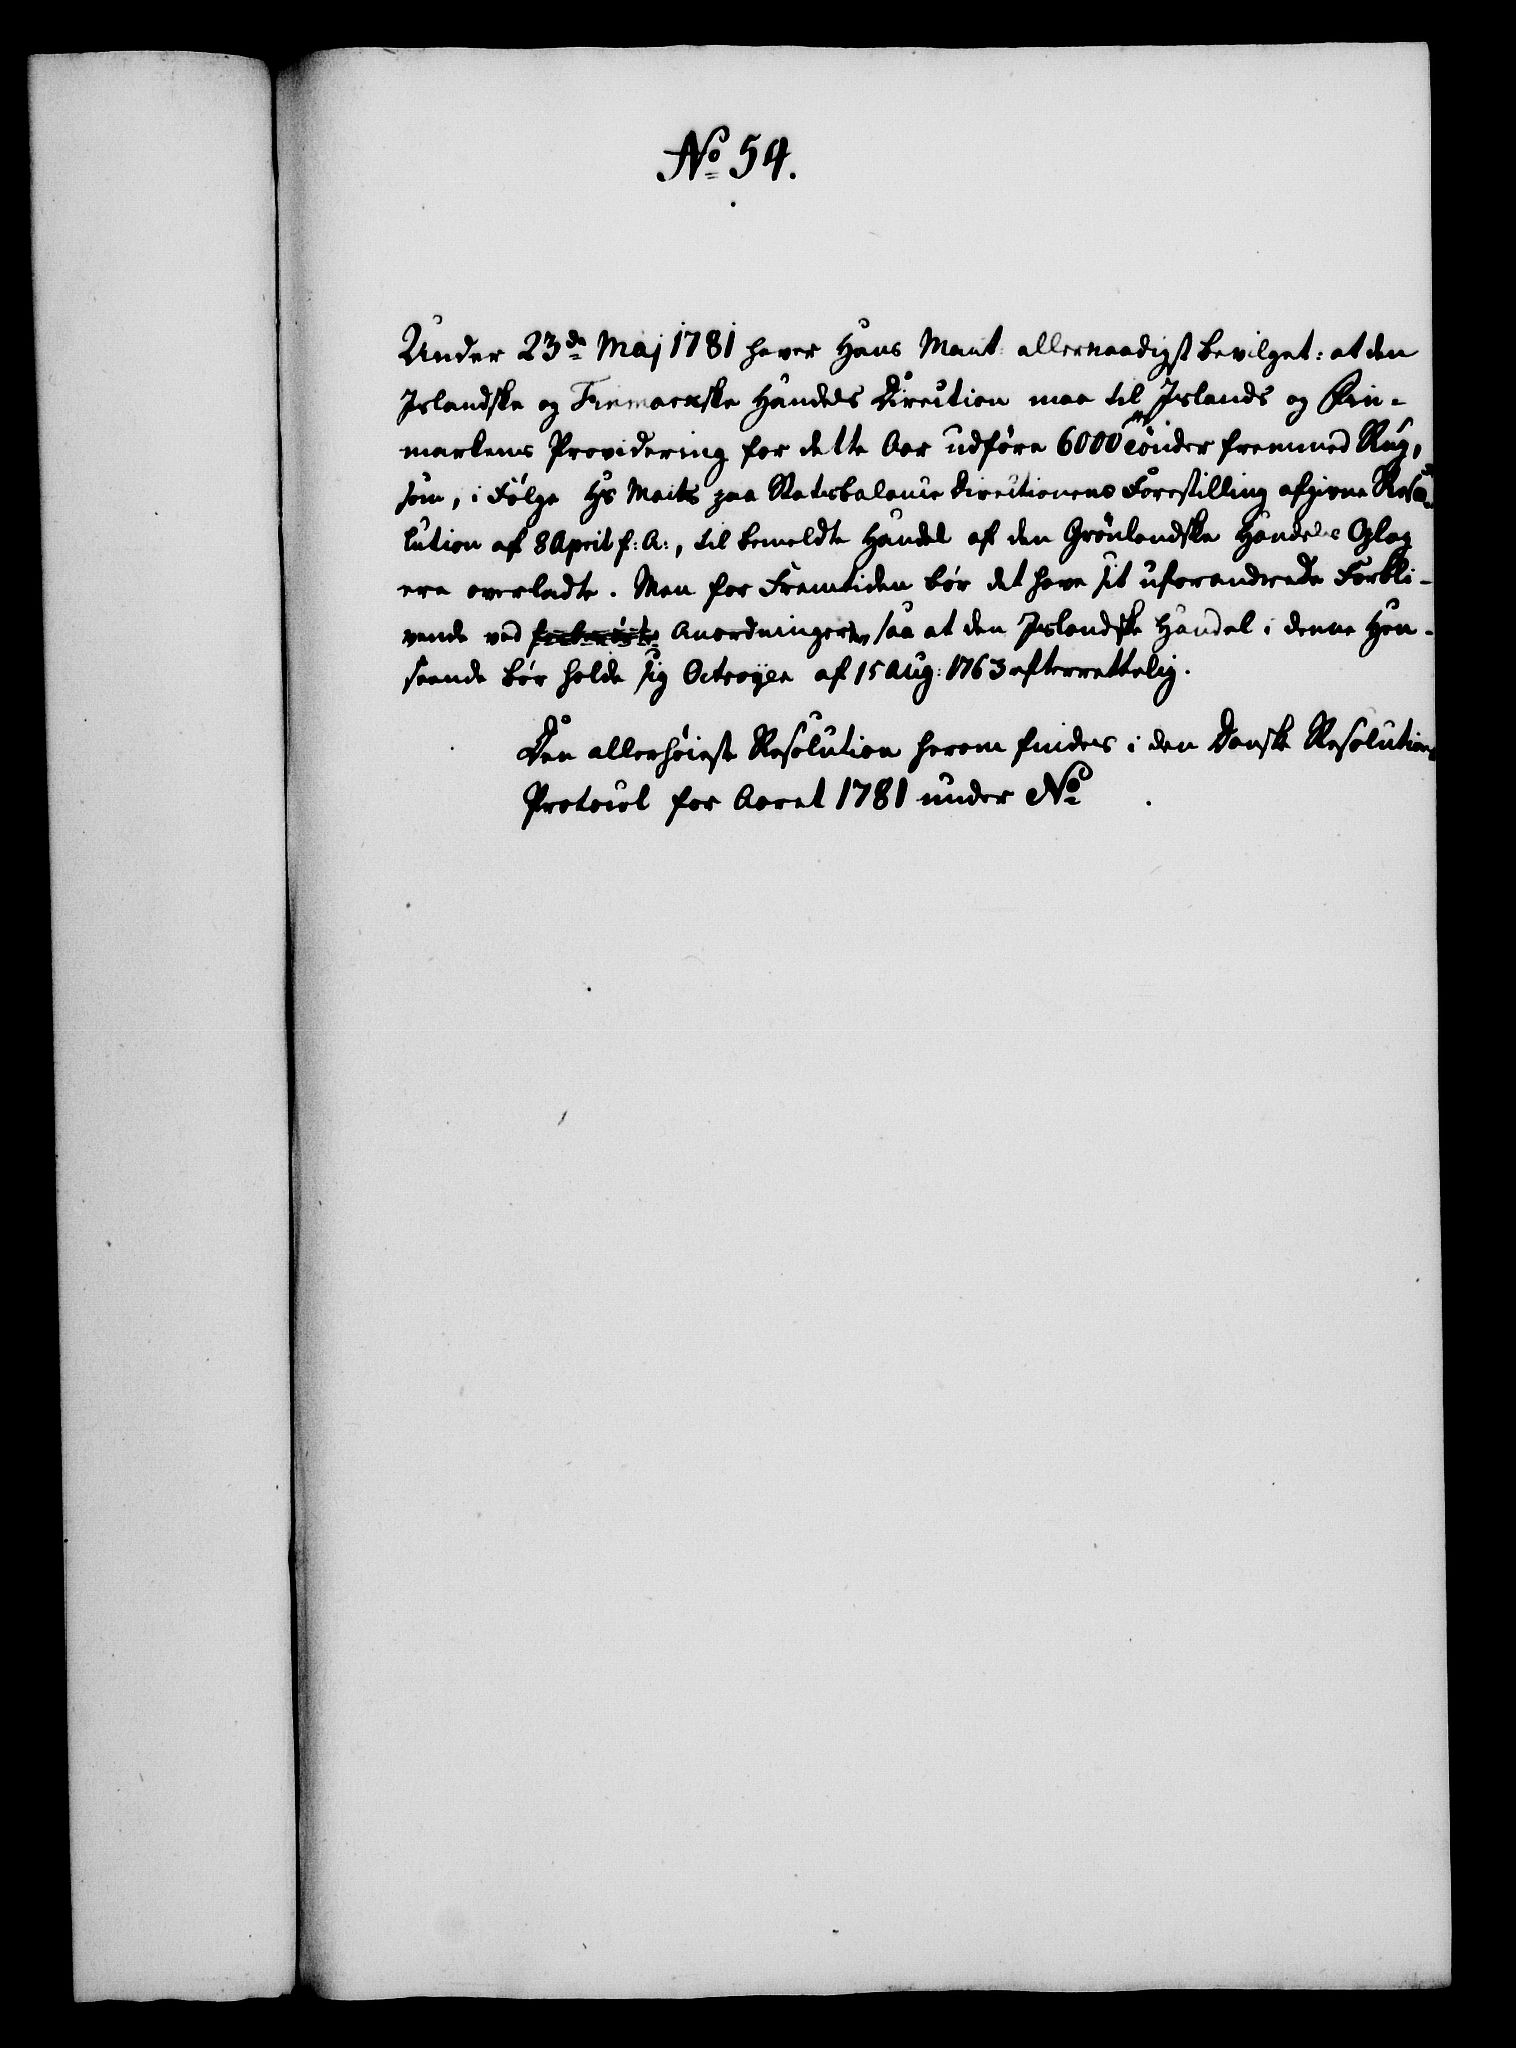 No 54.
Under 23de Maj 1781 haver Hans Mait: allernaadigst bevilget: at den
Islandske og Finmarkske Handels Direction maa til Islands og Fin-
markens Providering for dette Aar udføre 6000 Tönder fremmed Rug,
som, i Følge Hs Maits paa Statsbalance Directionens Forestilling afgivne Reso-
lution af 8 April f: A:, til bemeldte Handel af den Grönlandske Handels Oplag
ere overladte. Men for Fremtiden bör det have sit uforandrede Forbli-
vende ved Anordningerne, saa at den Islandske Handel i denne Hen-
seende bör holde sig Octroyen af 15 Aug: 1763 efterrettelig.
Den allerhöieste Resolution herom findes i den Danske Resolutions
Protocol for Aaret 1781 under No .